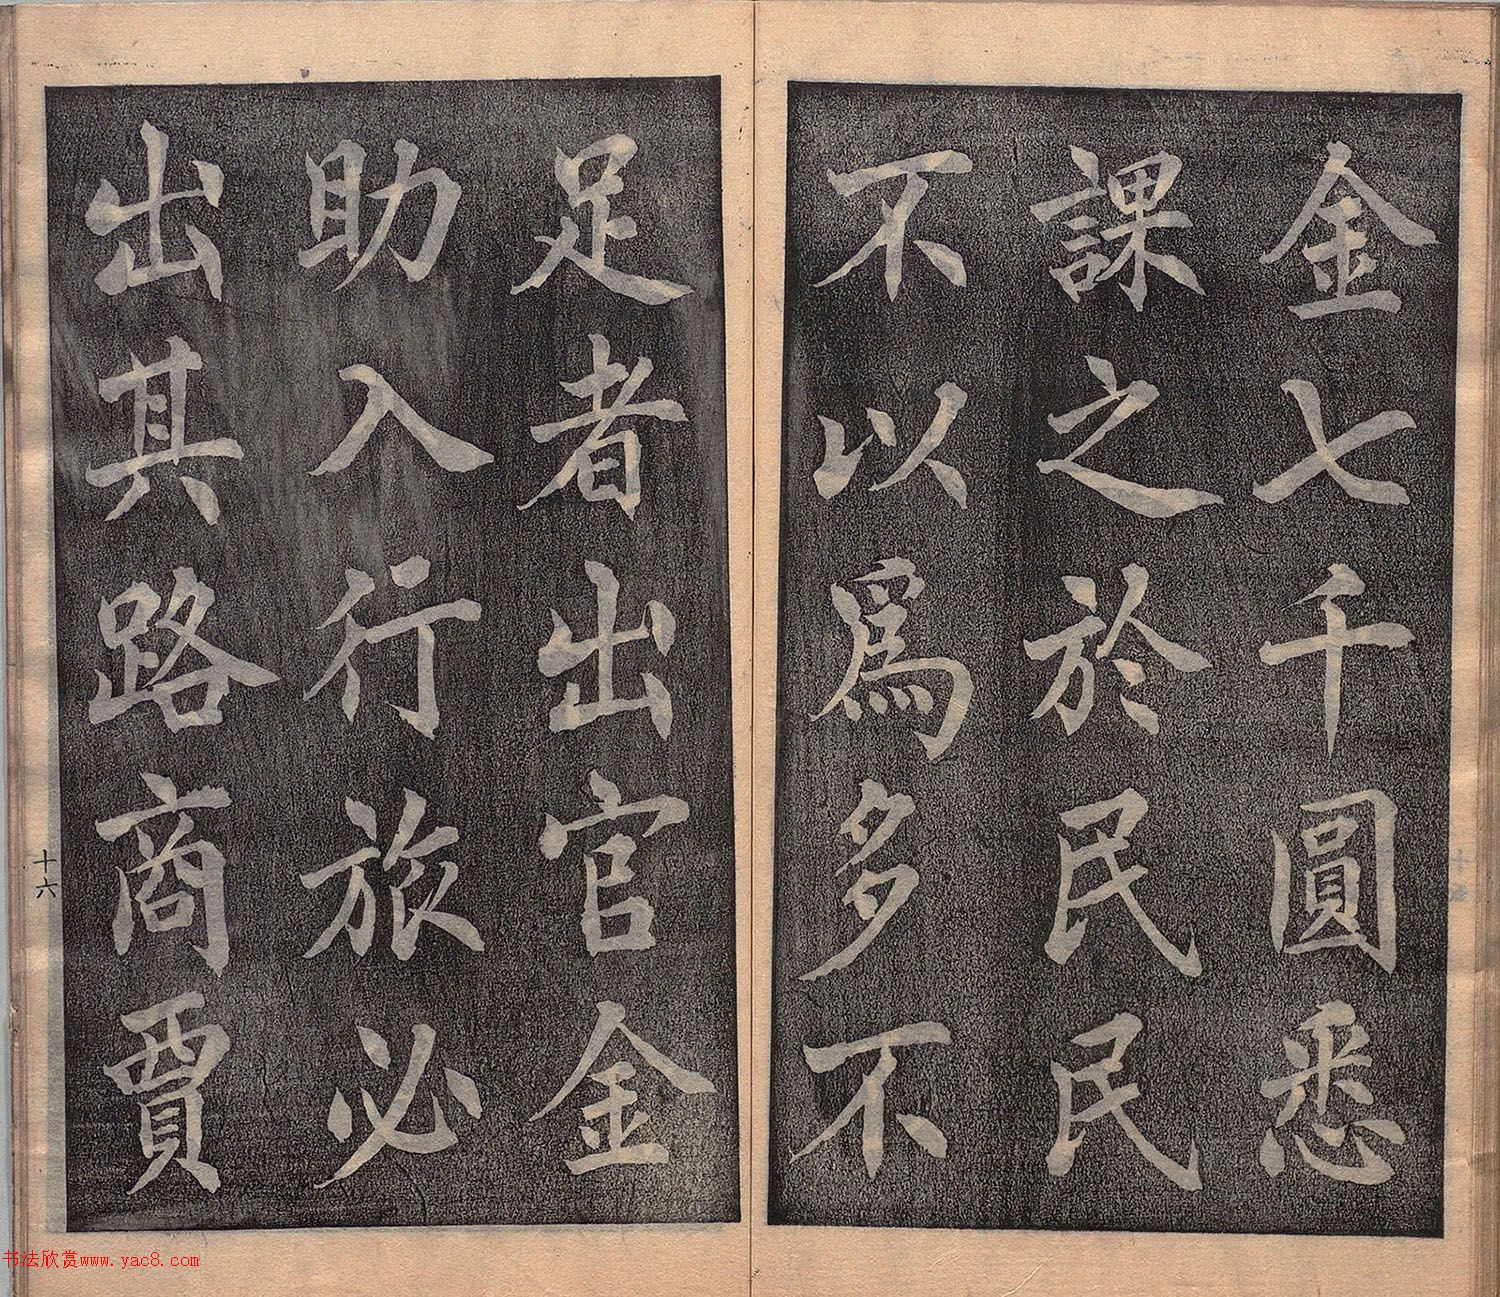 金七千圓悉
課之於民民
不以為多不
足者出官金
助入行旅必
出其路商賈
十六
书法欣赏www.yac8.com